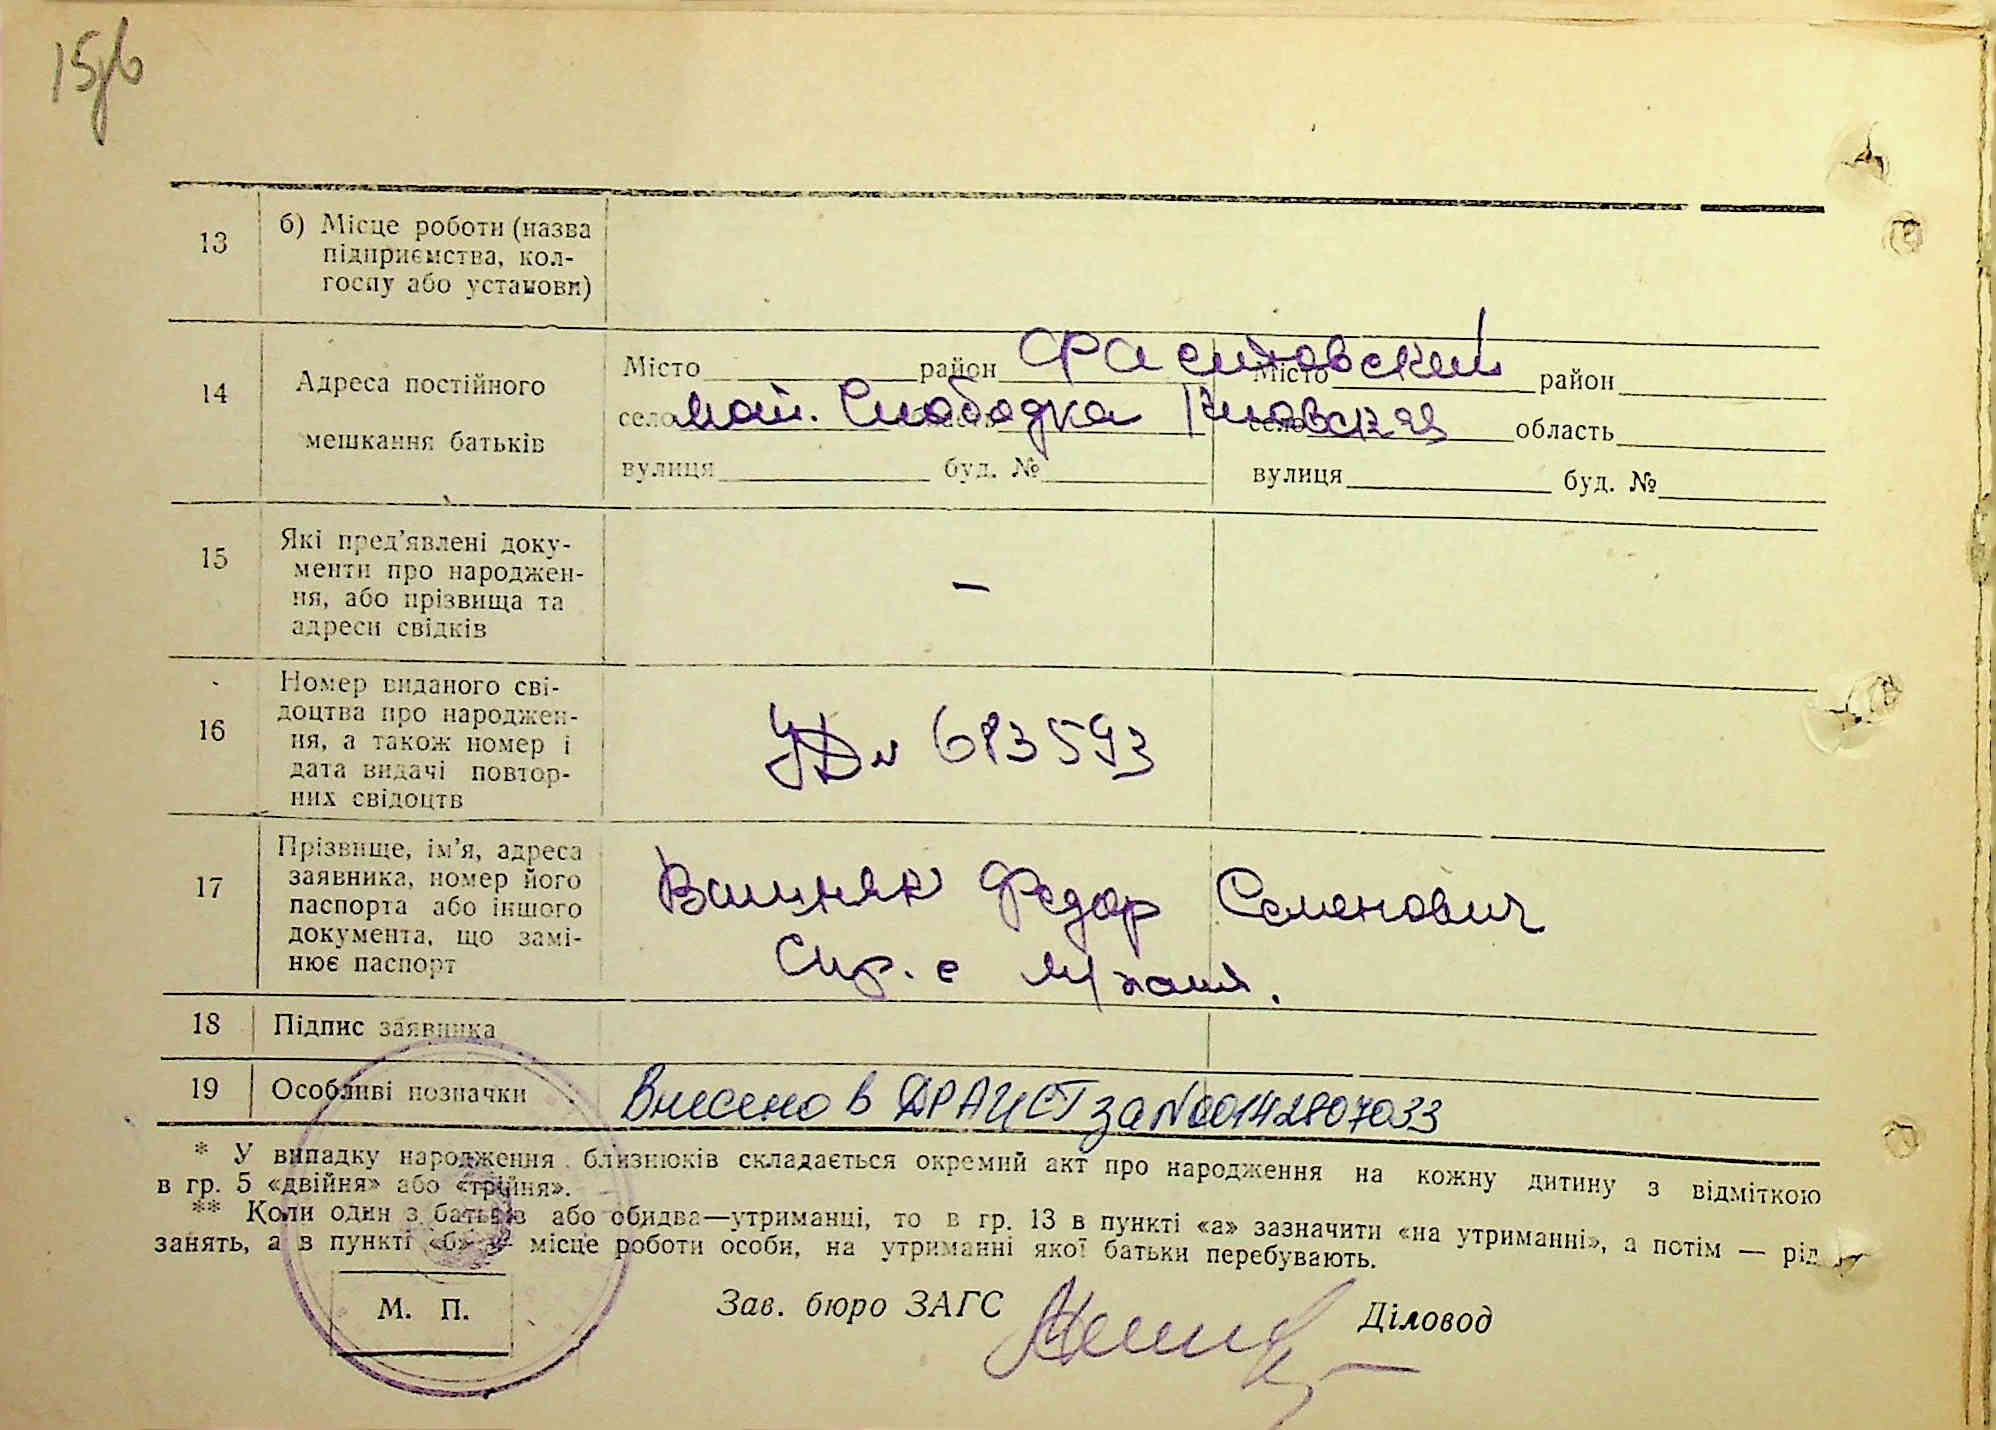 13 б) Місце роботи (назва
підприємства, кол-
госпу або установи)
14 Адреса постійного
мешкання батьків
Місто район Фастовский Місто район
село мот. Слободка Киевская село область
вулиця буд. № вулиця буд. №
15 Які пред'явлені доку-
менти про народжен-
ня, або прізвища та
адреси свідків
–
16 Номер виданого сві-
доцтва про народжен-
ня, а також номер і
дата видачі повтор-
них свідоцтв
683593
17 Прізвище, ім'я, адреса
заявника, номер його
паспорта або іншого
документа, що замі-
нює паспорт
Вишняк Федор Семенович
18 Підпис заявника
19 Особливі позначки Внесено в ДРАЦСГ за №00142807033
* У випадку народження близнюків складається окремий акт про народження на кожну дитину з відміткою
в гр. 5 «двійня» або «трійня».
** Коли один з батьків або обидва—утриманці, то в гр. 13 в пункті «а» зазначити «на утриманні», а потім — рід
занять, а в пункті «б» — місце роботи особи, на утриманні якої батьки перебувають.
М. П.
Зав. бюро ЗАГС Діловод